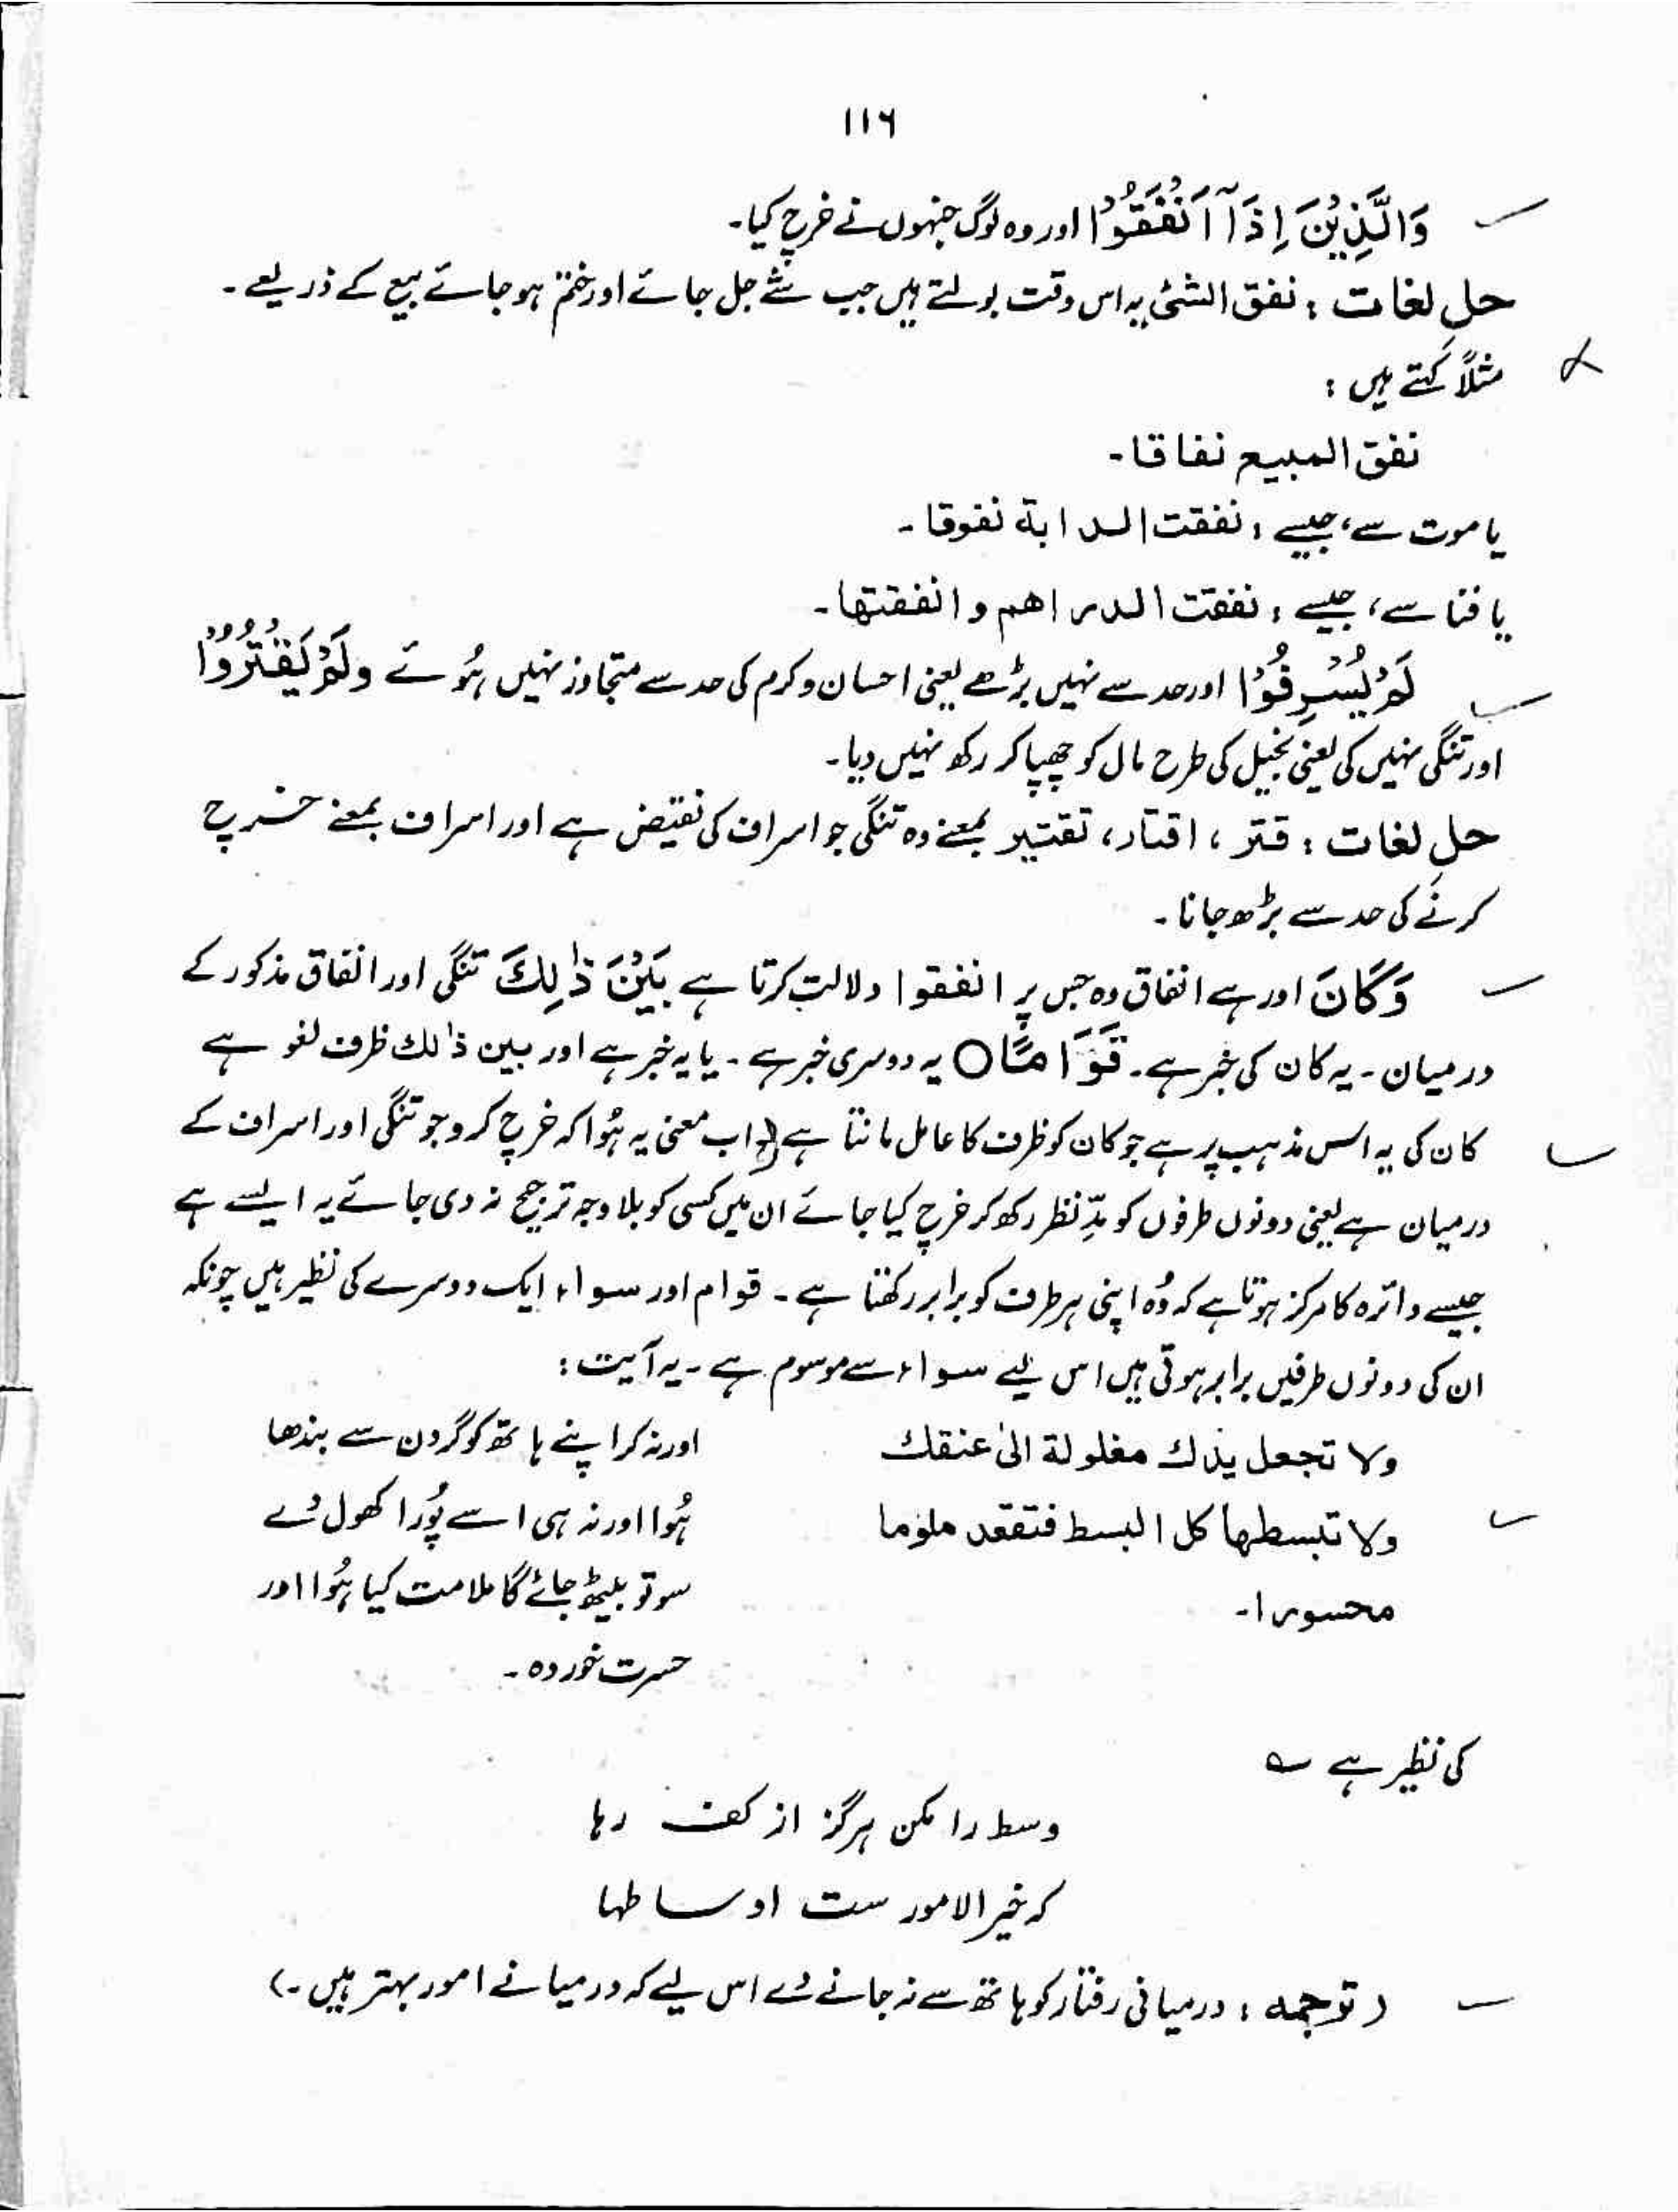 ۱۱۶
وَالَّذِيْنَ اِذَآ اَنْفَقُوْا اور وہ لوگ جنہوں نے خرچ کیا۔
حلِ لغات : نفق الشئ یہ اس وقت بولتے ہیں جب شے جل جائے اور ختم ہو جائے بیع کے ذریعے۔
مثلاً کہتے ہیں :
نفق المبیع نفاقا۔
یا موت سے، جیسے : نفقت الدابة نفوقا۔
یا فنا سے، جیسے : نفقت الدراهم و انفقتها۔
لَمْ يُسْرِفُوْا اور حد سے نہیں بڑھے یعنی احسان و کرم کی حد سے متجاوز نہیں ہُوئے وَلَمْ يَقْتُرُوْا
اور تنگی نہیں کی یعنی بخیل کی طرح مال کو چھپا کر رکھ نہیں دیا۔
حلِ لغات : قتر ، اقتار، تقتیر بمعنے وہ تنگی جو اسراف کی نقیض ہے اور اسراف بمعنے خرچ
کرنے کی حد سے بڑھ جانا۔
وَكَانَ اور ہے انفاق وہ جس پر انفقوا دلالت کرتا ہے بَيْنَ ذٰلِكَ تنگی اور انفاق مذکور کے
درمیان۔ یہ کان کی خبر ہے۔ قَوَامًا ○ یہ دوسری خبر ہے۔ یا یہ خبر ہے اور بین ذٰلك ظرف لغو ہے
کان کی یہ اس مذہب پر ہے جو کان کو ظرف کا عامل مانتا ہے اب معنی یہ ہُوا کہ خرچ کرو جو تنگی اور اسراف کے
درمیان ہے یعنی دونوں طرفوں کو مدِّنظر رکھ کر خرچ کیا جائے ان میں کسی کو بلاوجہ ترجیح نہ دی جائے یہ ایسے ہے
جیسے دائرہ کا مرکز ہوتا ہے کہ وُہ اپنی ہر طرف کو برابر رکھتا ہے۔ قوام اور سواء ایک دوسرے کی نظیر ہیں چونکہ
ان کی دونوں طرفیں برابر ہوتی ہیں اس لیے سواء سے موسوم ہے۔ یہ آیت :
ولا تجعل یدك مغلولة الیٰ عنقك
ولا تبسطها كل البسط فتقعد ملوما
محسورا۔
اور نہ کر اپنے ہاتھ کو گردن سے بندھا
ہُوا اور نہ ہی اسے پُورا کھول دے
سو تو بیٹھ جائے گا ملامت کیا ہُوا اور
حسرت خوردہ۔
کی نظیر ہے ؎
وسط را مکن ہرگز از کف رہا
کہ خیر الامور ست اوساطہا
(ترجمہ : درمیانی رفتار کو ہاتھ سے نہ جانے دے اس لیے کہ درمیانے امور بہتر ہیں۔)